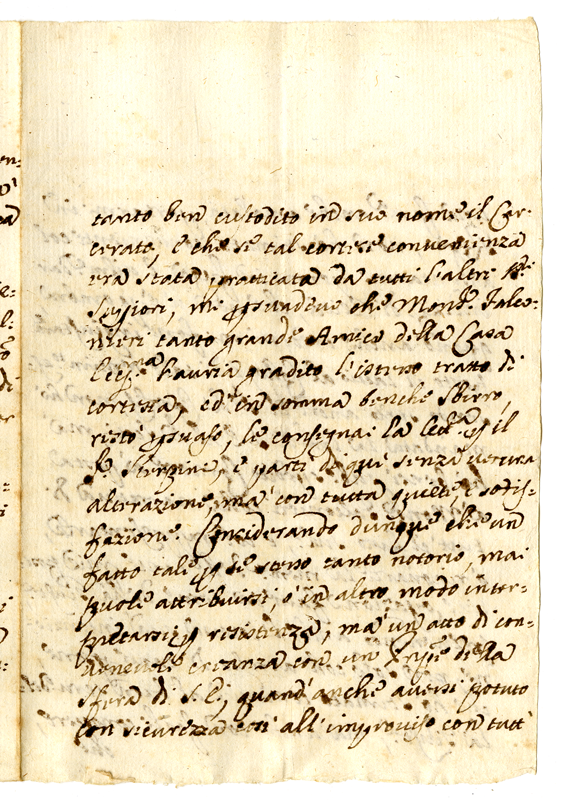 tanto ben custodito in suo nome il Car-
cerato, e che se tal cortese convenienza
era stata pratticata da tutti l'altri
mi persuadevo che Mons.r Falco-
nieri tanto grande Amico della Casa
l'avria gradito l'istesso tratto di
cortesia, ed in somma benche sbirro,
restò persuaso, le consegnai la lett.a p il
e partì di quì senza veruna
alterazione, ma con tutta quiete, e sodis-
fazione. Considerando dunque che un
fatto tale p se stesso tanto notorio, mai
puole attribuirsi, ò in altro modo inter-
pretarsi p resistenza, ma un atto di con-
venevole creanza con un della
sfera di S. E., quand'anche avessi potuto
con sicurezza così all'improviso con tutt'